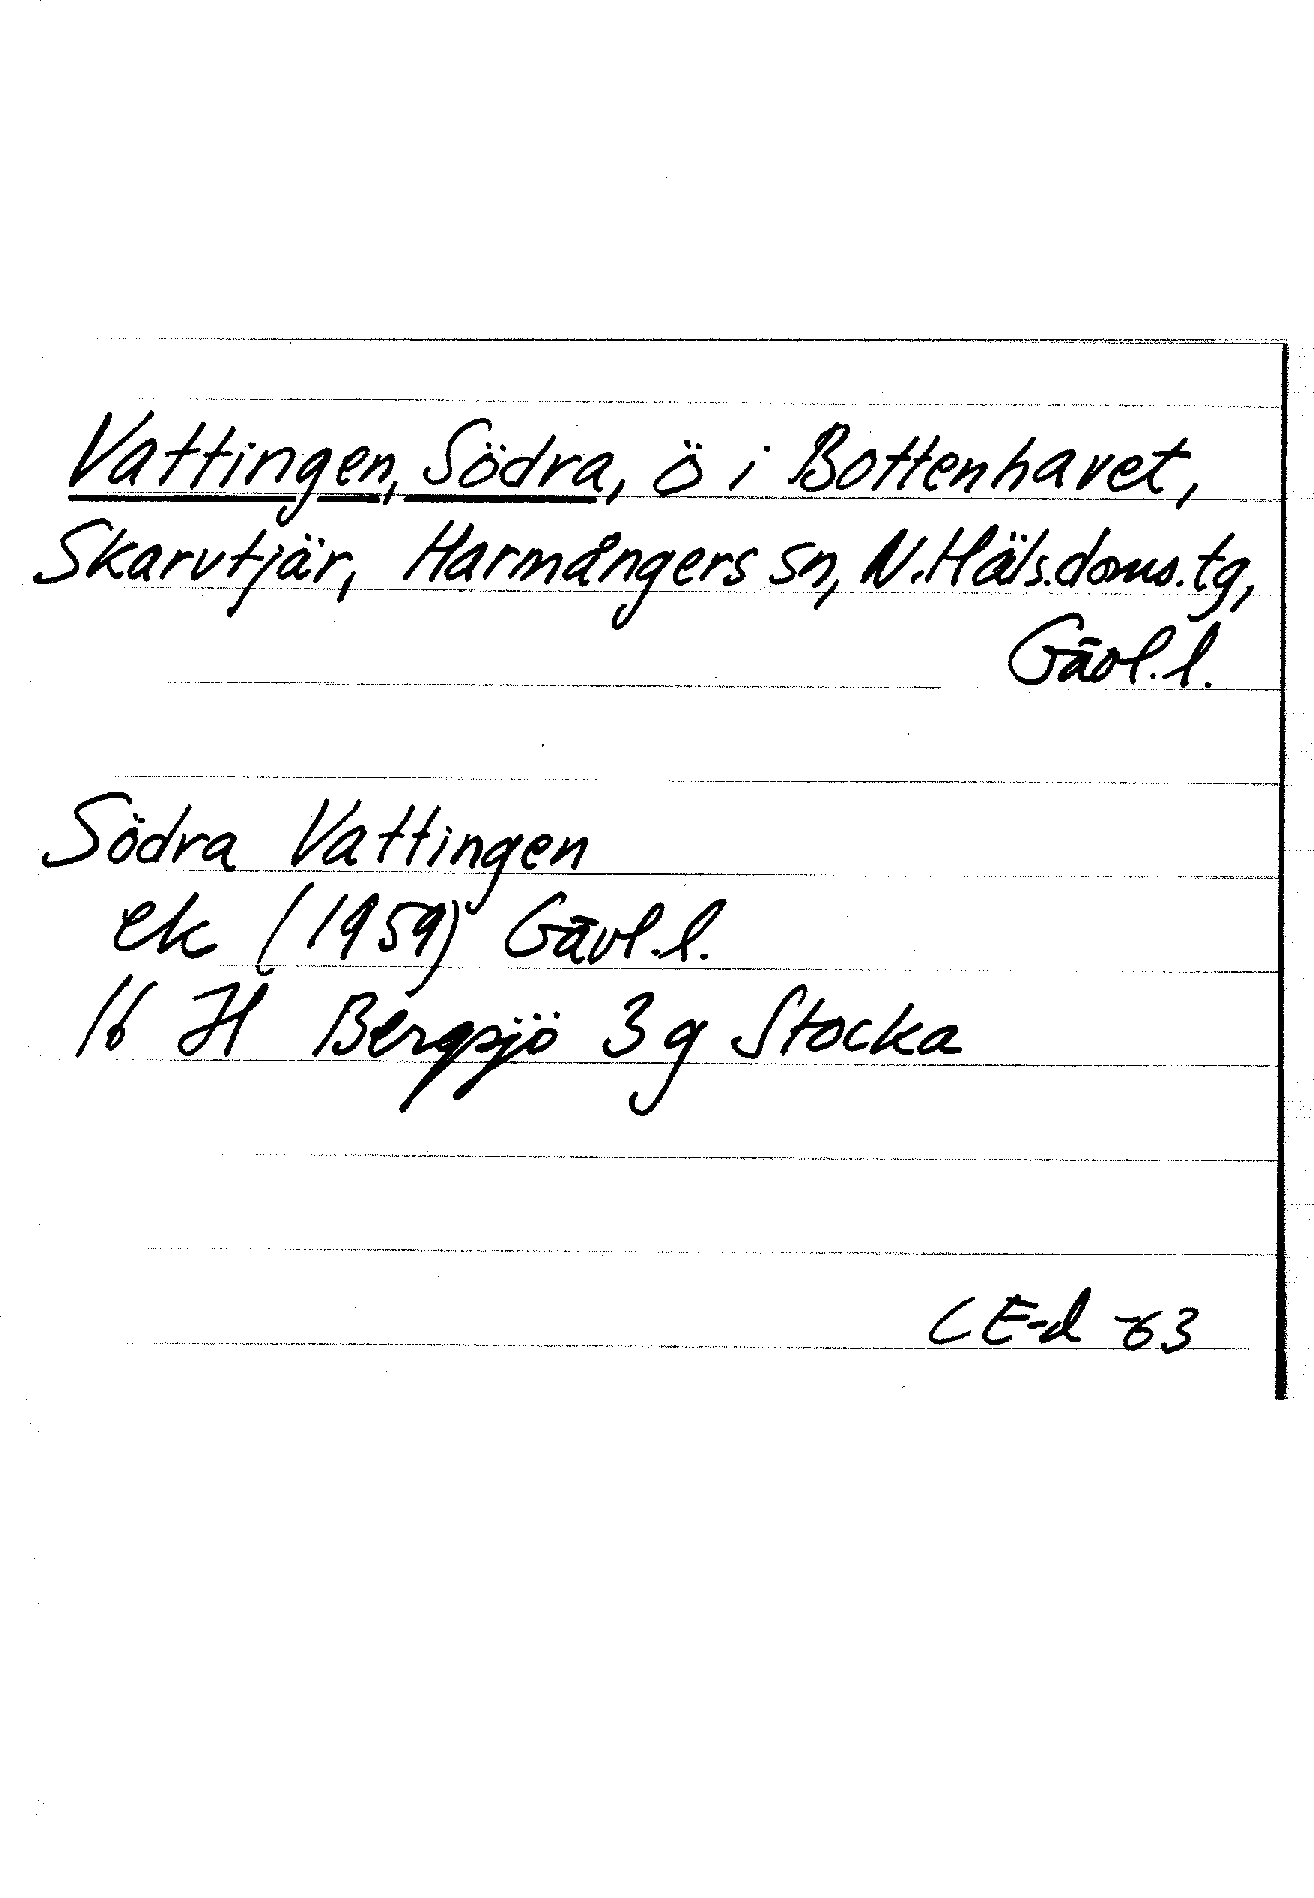 Vattingen, Södra, ö i Bottenhavet,
Skarvtjär, Harmångers sn, N.Häls.doms.tg,
Gävl.l.
Södra Vattingen
ek (1959) Gävl.l.
16 H Bergsjö 3g Stocka
CE-d -63